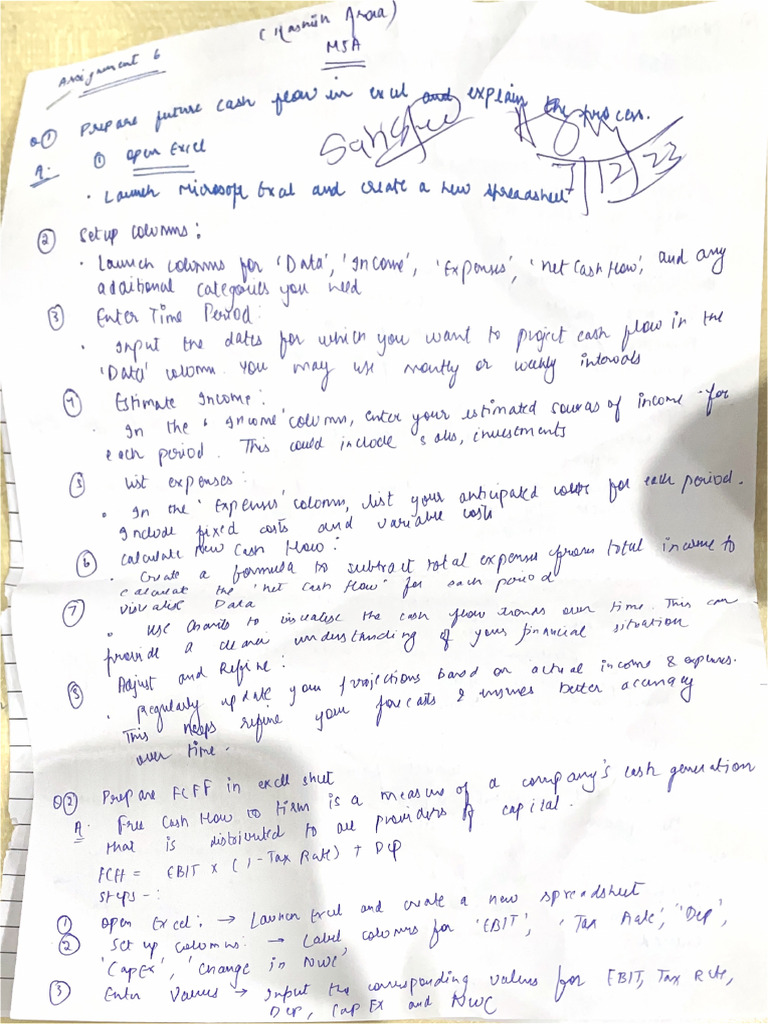 Assignment 6
(Kashish Arora)
MSA
Q① Prepare future cash flow in excel and explain the process.
A. ① Open Excel
Satisfied
7/12/23
• Launch Microsoft Excel and create a new spreadsheet
② Setup columns:
• Launch columns for 'Data', 'Income', 'Expenses', 'Net Cash flow', and any
additional categories you need
③ Enter Time Period:
• Input the dates for which you want to project cash flow in the
'Data' column. You may use monthly or weekly intervals
④ Estimate Income:
• In the 'Income' column, enter your estimated sources of income for
each period. This could include sales, investments
⑤ List expenses:
• In the 'Expenses' column, list your anticipated costs for each period.
Include fixed costs and variable costs
⑥ Calculate New Cash flow:
• Create a formula to subtract total expenses from total income to
calculate the 'net cash flow' for each period
⑦ Visualise Data
• Use charts to visualise the cash flow trends over time. This can
provide a clearer understanding of your financial situation
⑧ Adjust and Refine:
• Regularly update your projections based on actual income & expenses.
This helps refine your forecasts & ensures better accuracy
over time.
Q② Prepare FCFF in excell sheet
A. Free Cash Flow to firm is a measure of a company's cash generation
that is distributed to all providers of capital.
FCFF = EBIT × (1 - Tax Rate) + Dep
Steps -:
① Open Excel: → Launch Excel and create a new spreadsheet
② Set up columns: → Label columns for 'EBIT', 'Tax Rate', 'Dep',
'CapEx', 'Change in NWC'
③ Enter Values → Input the corresponding values for EBIT, Tax Rate,
Dep, Cap Ex and NWC